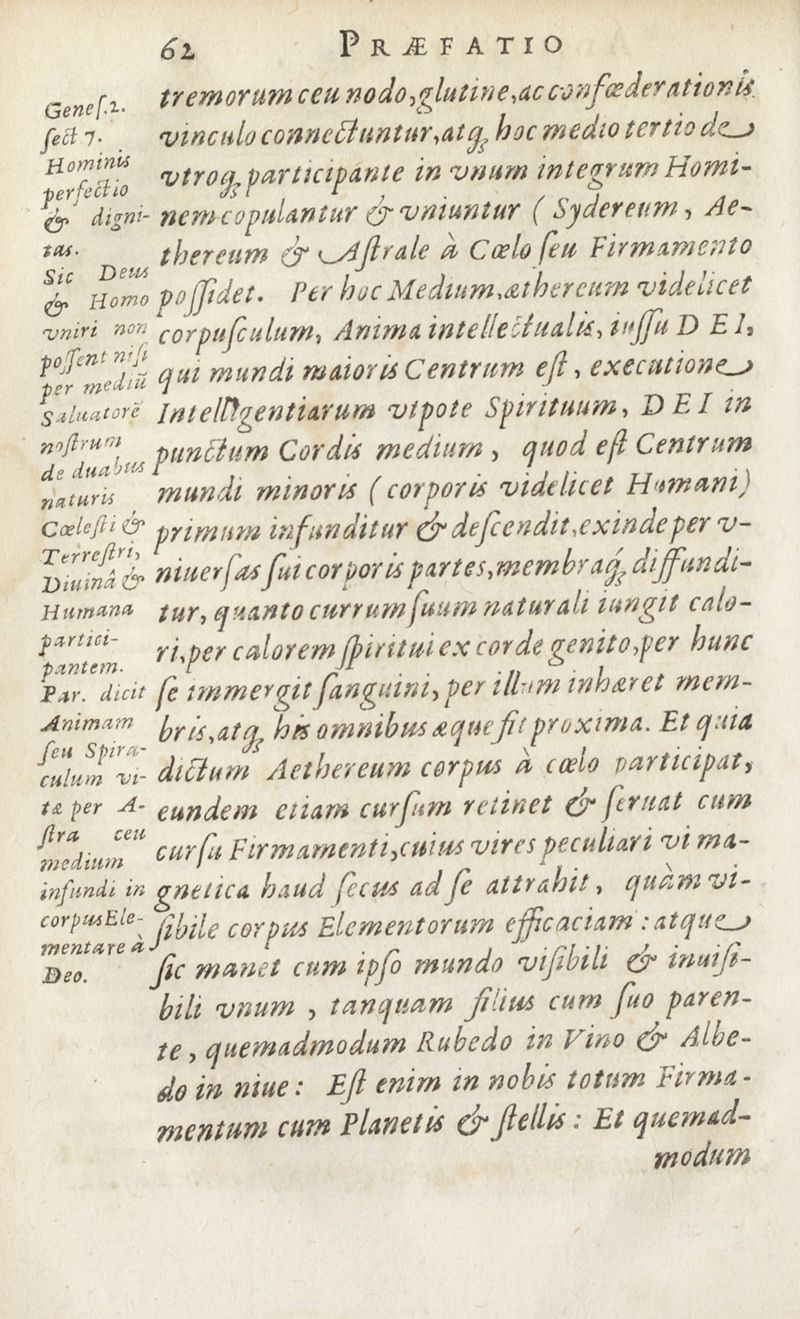 62 PRÆFATIO
Geneſ.2.
ſect 7.
Hominis
perfectio
& digni-
tas.
Sic Deus
& Homo
vniri non
poſſent niſi
per mediū
Saluatorē
noſtrum
de duabus
naturis
Cœleſti &
Terreſtri,
Diuinâ &
Humana
partici-
pantem.
Par. dicit
Animam
ſeu Spira-
culum vi-
tæ per A-
ſtra ceu
medium
infundi in
corpus Ele-
mentare à
Deo.
tremorum ceu nodo, glutine, ac confœderationis
vinculo connectuntur, atq; hoc medio tertio de
vtroq; participante in vnum integrum Homi-
nem copulantur & vniuntur ( Sydereum, Ae-
thereum & Aſtrale à Cœlo ſeu Firmamento
poſſidet. Per hoc Medium, æthereum videlicet
corpuſculum, Anima intellectualis, iuſſu DEI,
qui mundi maioris Centrum eſt, executione
Intelligentiarum vtpote Spirituum, DEI in
punctum Cordis medium, quod eſt Centrum
mundi minoris ( corporis videlicet Humani)
primum infunditur & deſcendit, exinde per v-
niuerſas ſui corporis partes, membraq́; diffundi-
tur, quanto currum ſuum naturali iungit calo-
ri, per calorem ſpiritui ex corde genito, per hunc
ſe immergit ſanguini, per illum inhæret mem-
bris, atq; his omnibus æque fit proxima. Et quia
dictum Aethereum corpus à cœlo participat,
eundem etiam curſum retinet & ſeruat cum
curſu Firmamenti, cuius vires peculiari vi ma-
gnetica haud ſecus ad ſe attrahit, quàm vi-
ſibile corpus Elementorum efficaciam : atque
ſic manet cum ipſo mundo viſibili & inuiſi-
bili vnum, tanquam filius cum ſuo paren-
te, quemadmodum Rubedo in Vino & Albe-
do in niue : Eſt enim in nobis totum Firma-
mentum cum Planetis & ſtellis : Et quemad-
modum